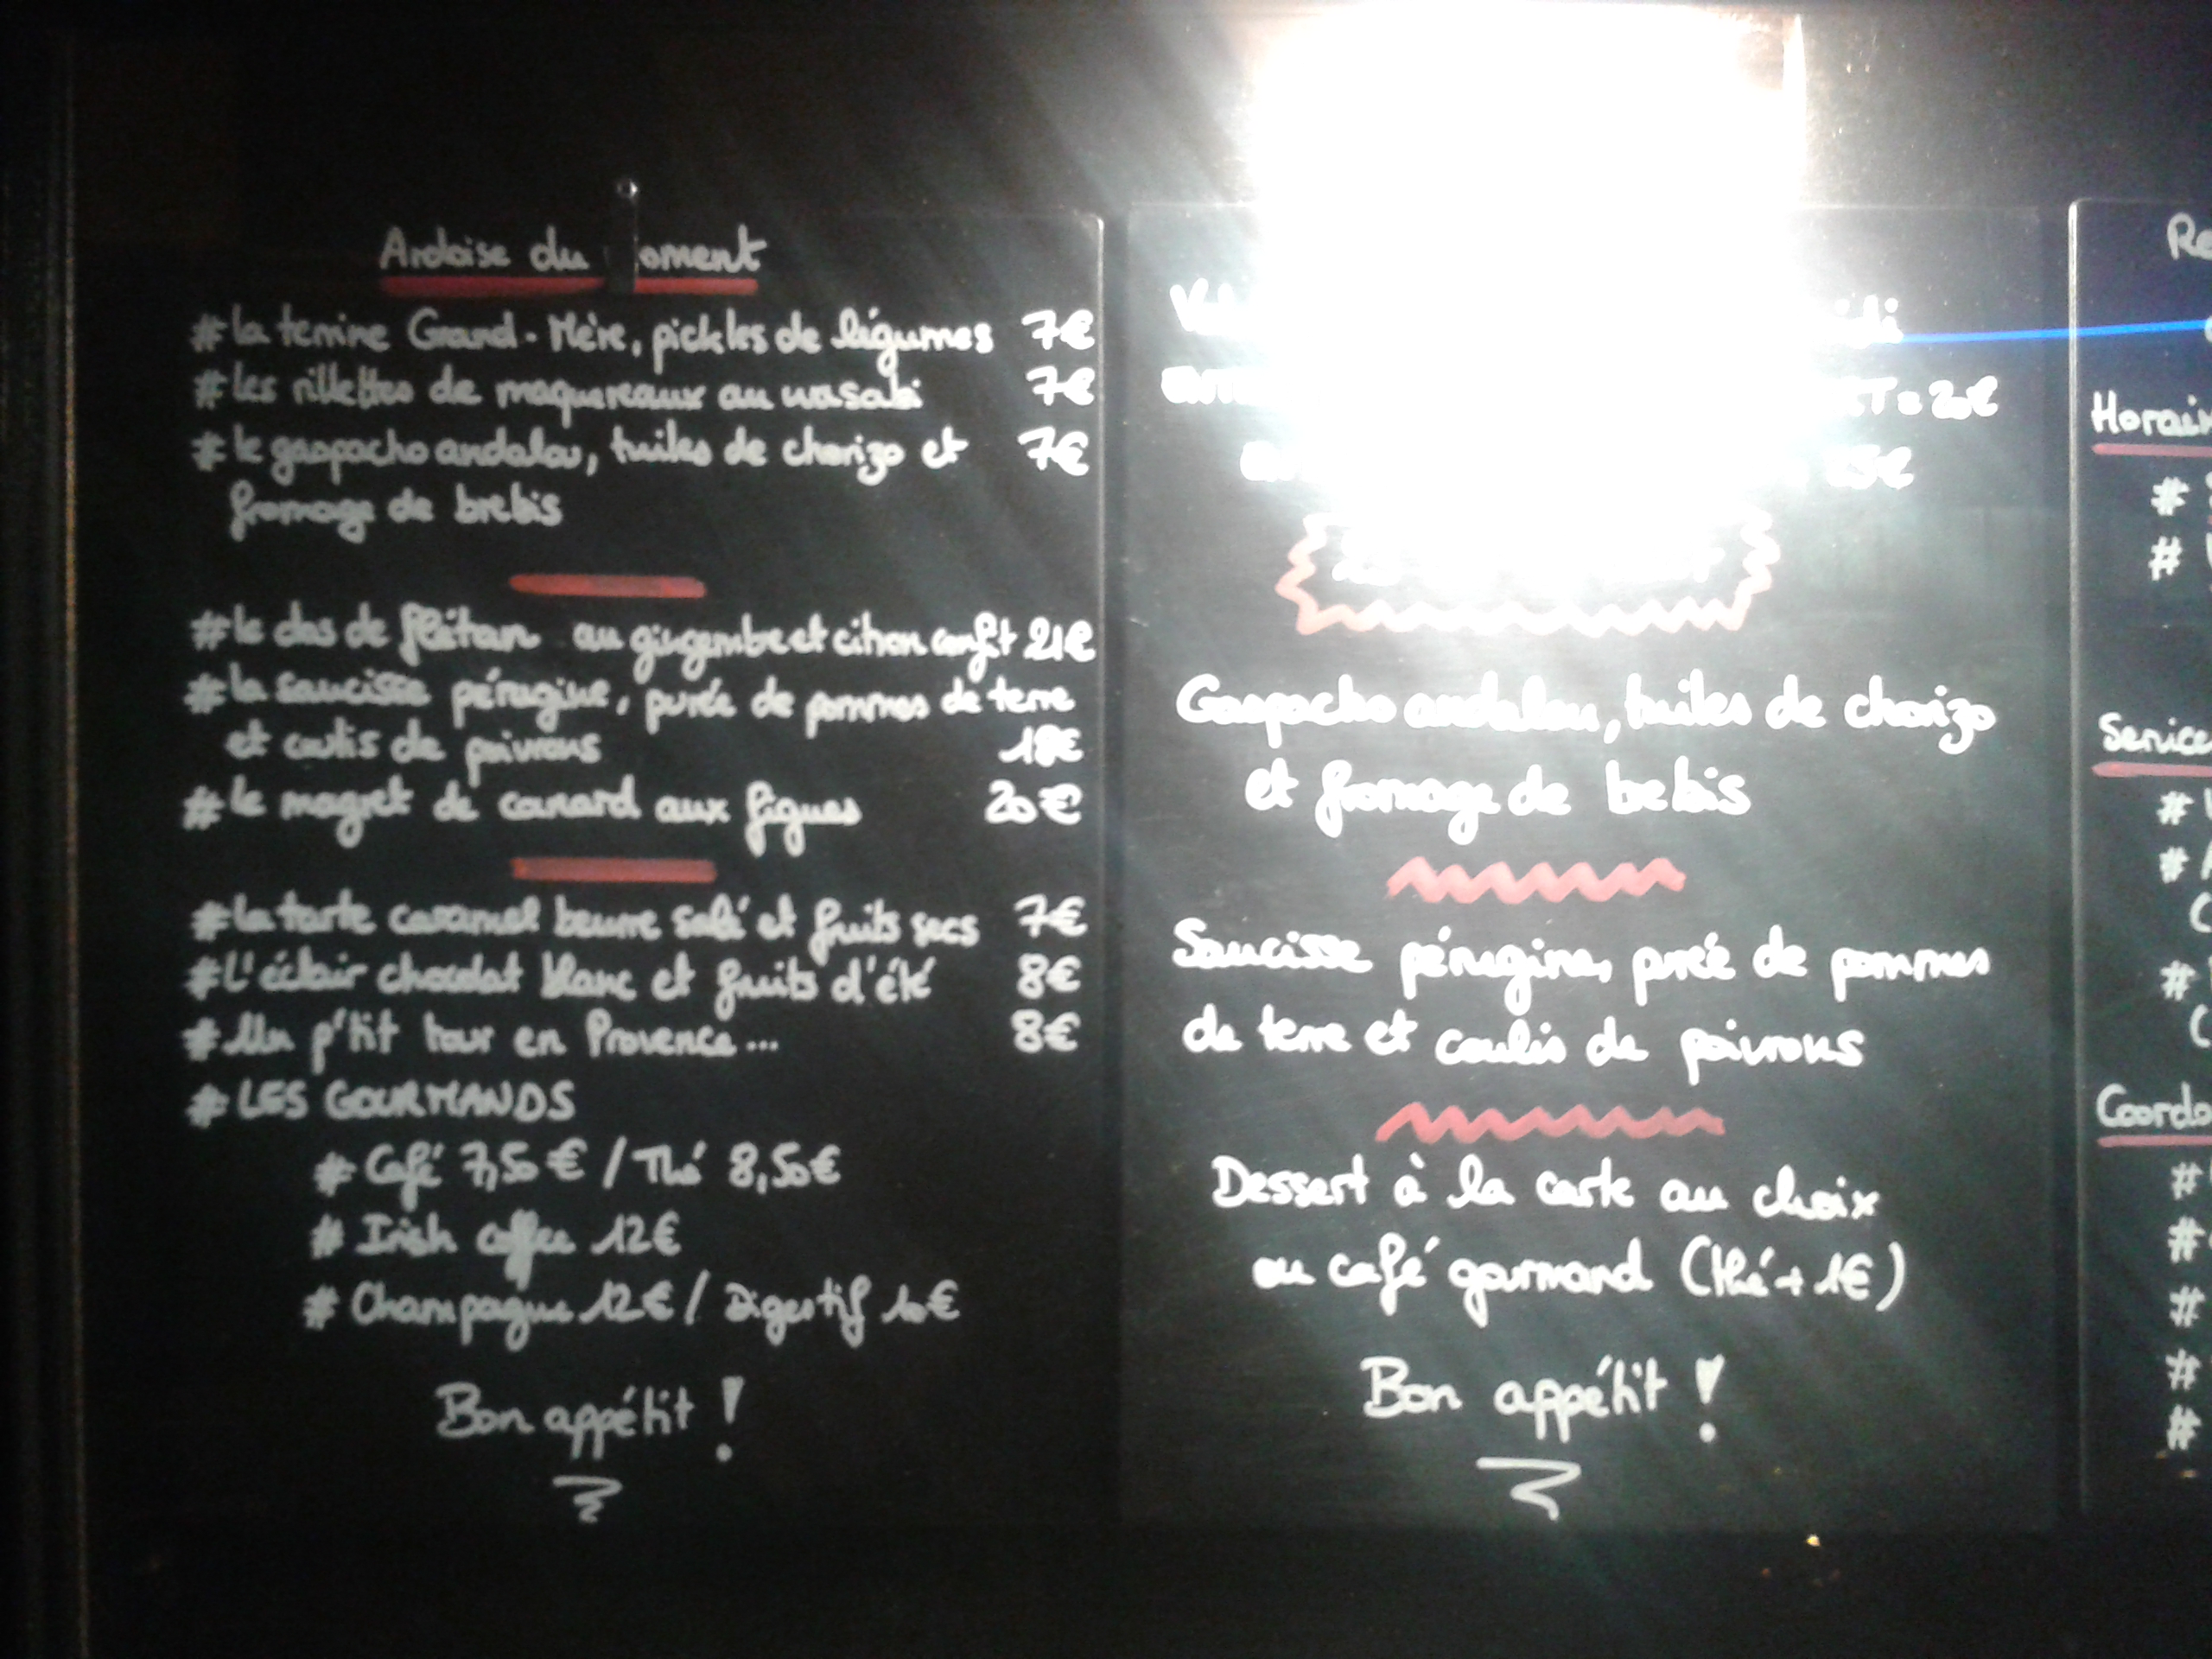 Ardoise du oment
# la terrine Grand-Mère, pickles de légumes 7€
# les rillettes de maquereaux au wasabi 7€
# le gaspacho andalou, tuiles de chorizo et 7€
fromage de brebis
# le dos de flétan au gingembre et citron confit 21€
# la saucisse pérugine, purée de pommes de terre
et coulis de poivrons 18€
# le magret de canard aux figues 20€
# la tarte caramel beurre salé et fruits secs 7€
# L'éclair chocolat blanc et fruits d'été 8€
# Un p'tit tour en Provence... 8€
# LES GOURMANDS
# Café 7,50€ / Thé 8,50€
# Irish coffee 12€
# Champagne 12€ / Digestif 10€
Bon appétit !
= 20€
Gaspacho andalou, tuiles de chorizo
et fromage de brebis
Saucisse pérugine, purée de pommes
de terre et coulis de poivrons
Dessert à la carte au choix
ou café gourmand (thé + 1€)
Bon appétit !
Re
Horair
#
#
Service
#
#
(
#
(
Coordo
#
#
#
#
#